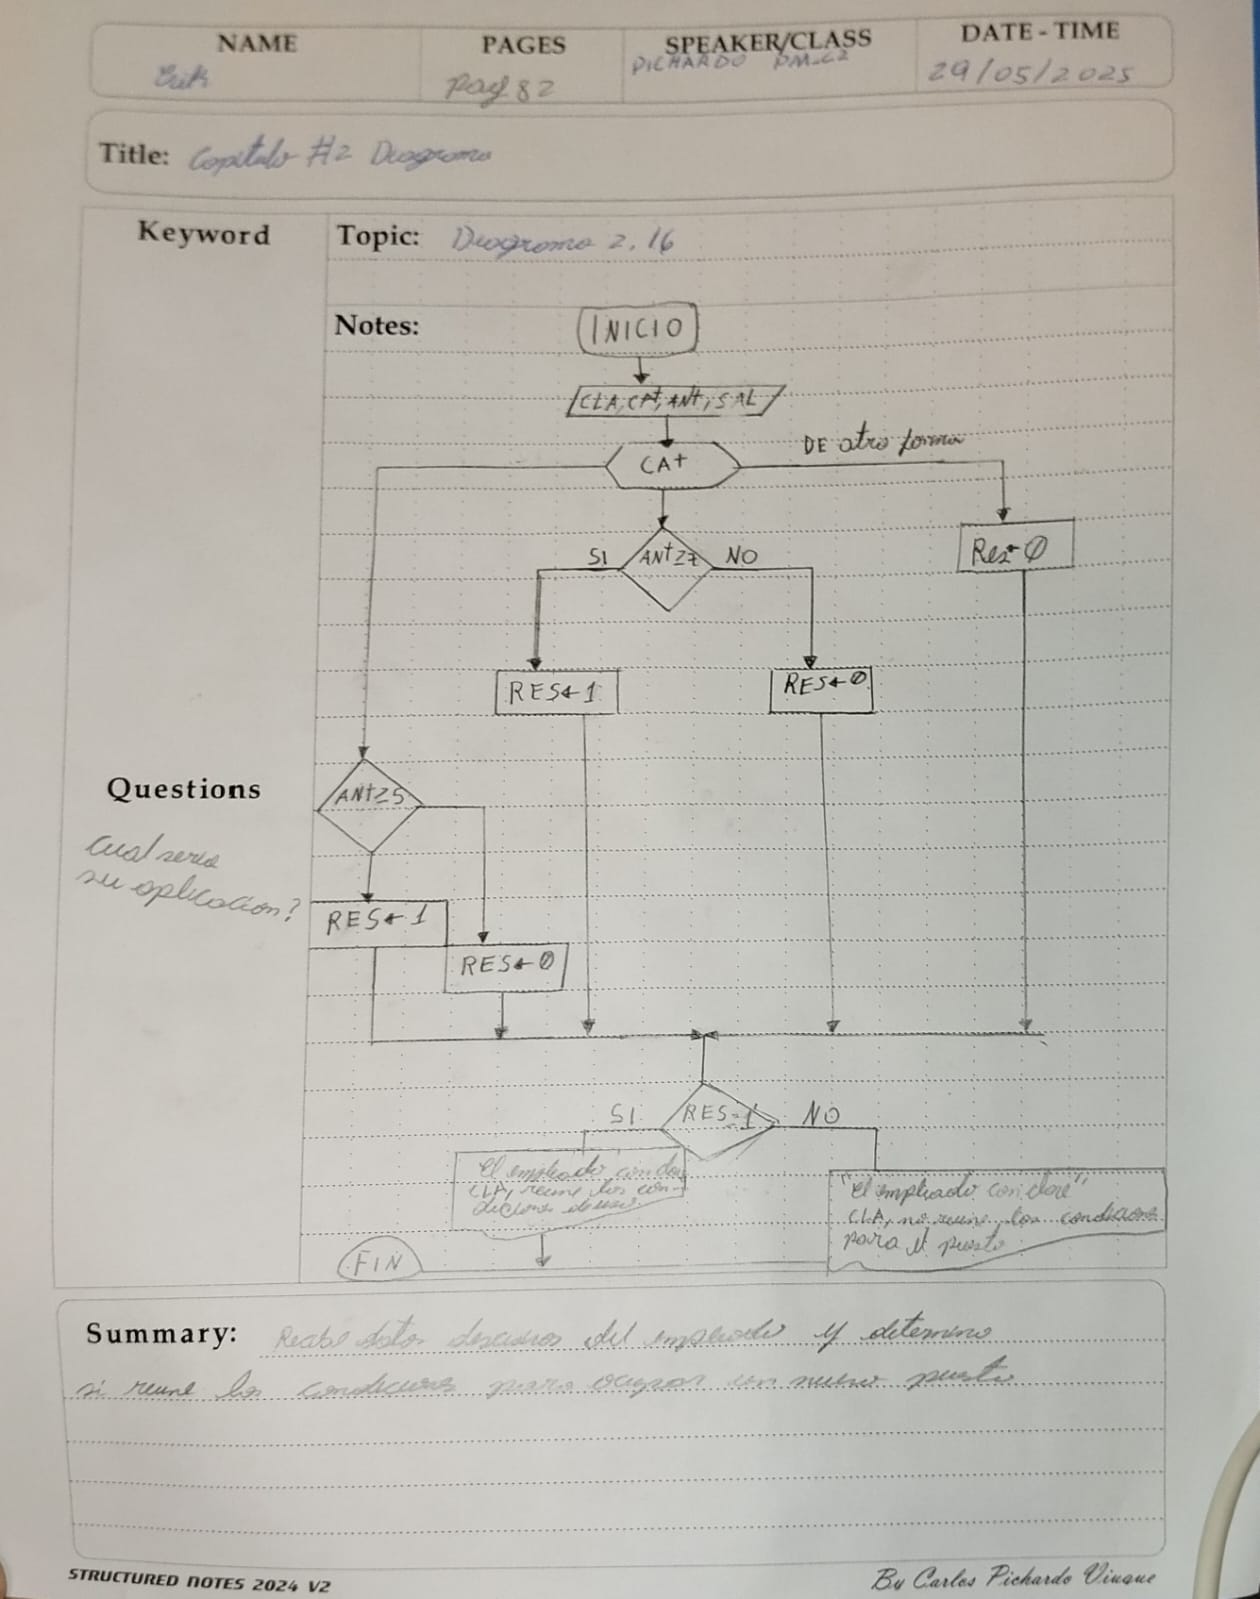 NAME PAGES SPEAKER/CLASS DATE - TIME
Erik pag 82 PICHARDO PM-C2 29/05/2025
Title: Capitulo #2 Diagrama
Keyword
Topic: Diagrama 2.16
Notes:
INICIO
CLA, CAt, ANt, SAL
CAt
DE otra forma
SI ANt≥7 NO
Res←0
RES←1
RES←0
Questions
Cual seria
su aplicacion?
ANt≥5
RES←1
RES←0
SI RES=1 NO
El empleado con
CLA, reune los con-
diciones
"El empleado con clave",
CLA, no reune, los condiciones
para el puesto
FIN
Summary: Recibe datos del empleado y determina
si reune las condiciones para ocupar un nuevo puesto
STRUCTURED NOTES 2024 V2
By Carlos Pichardo Viuque